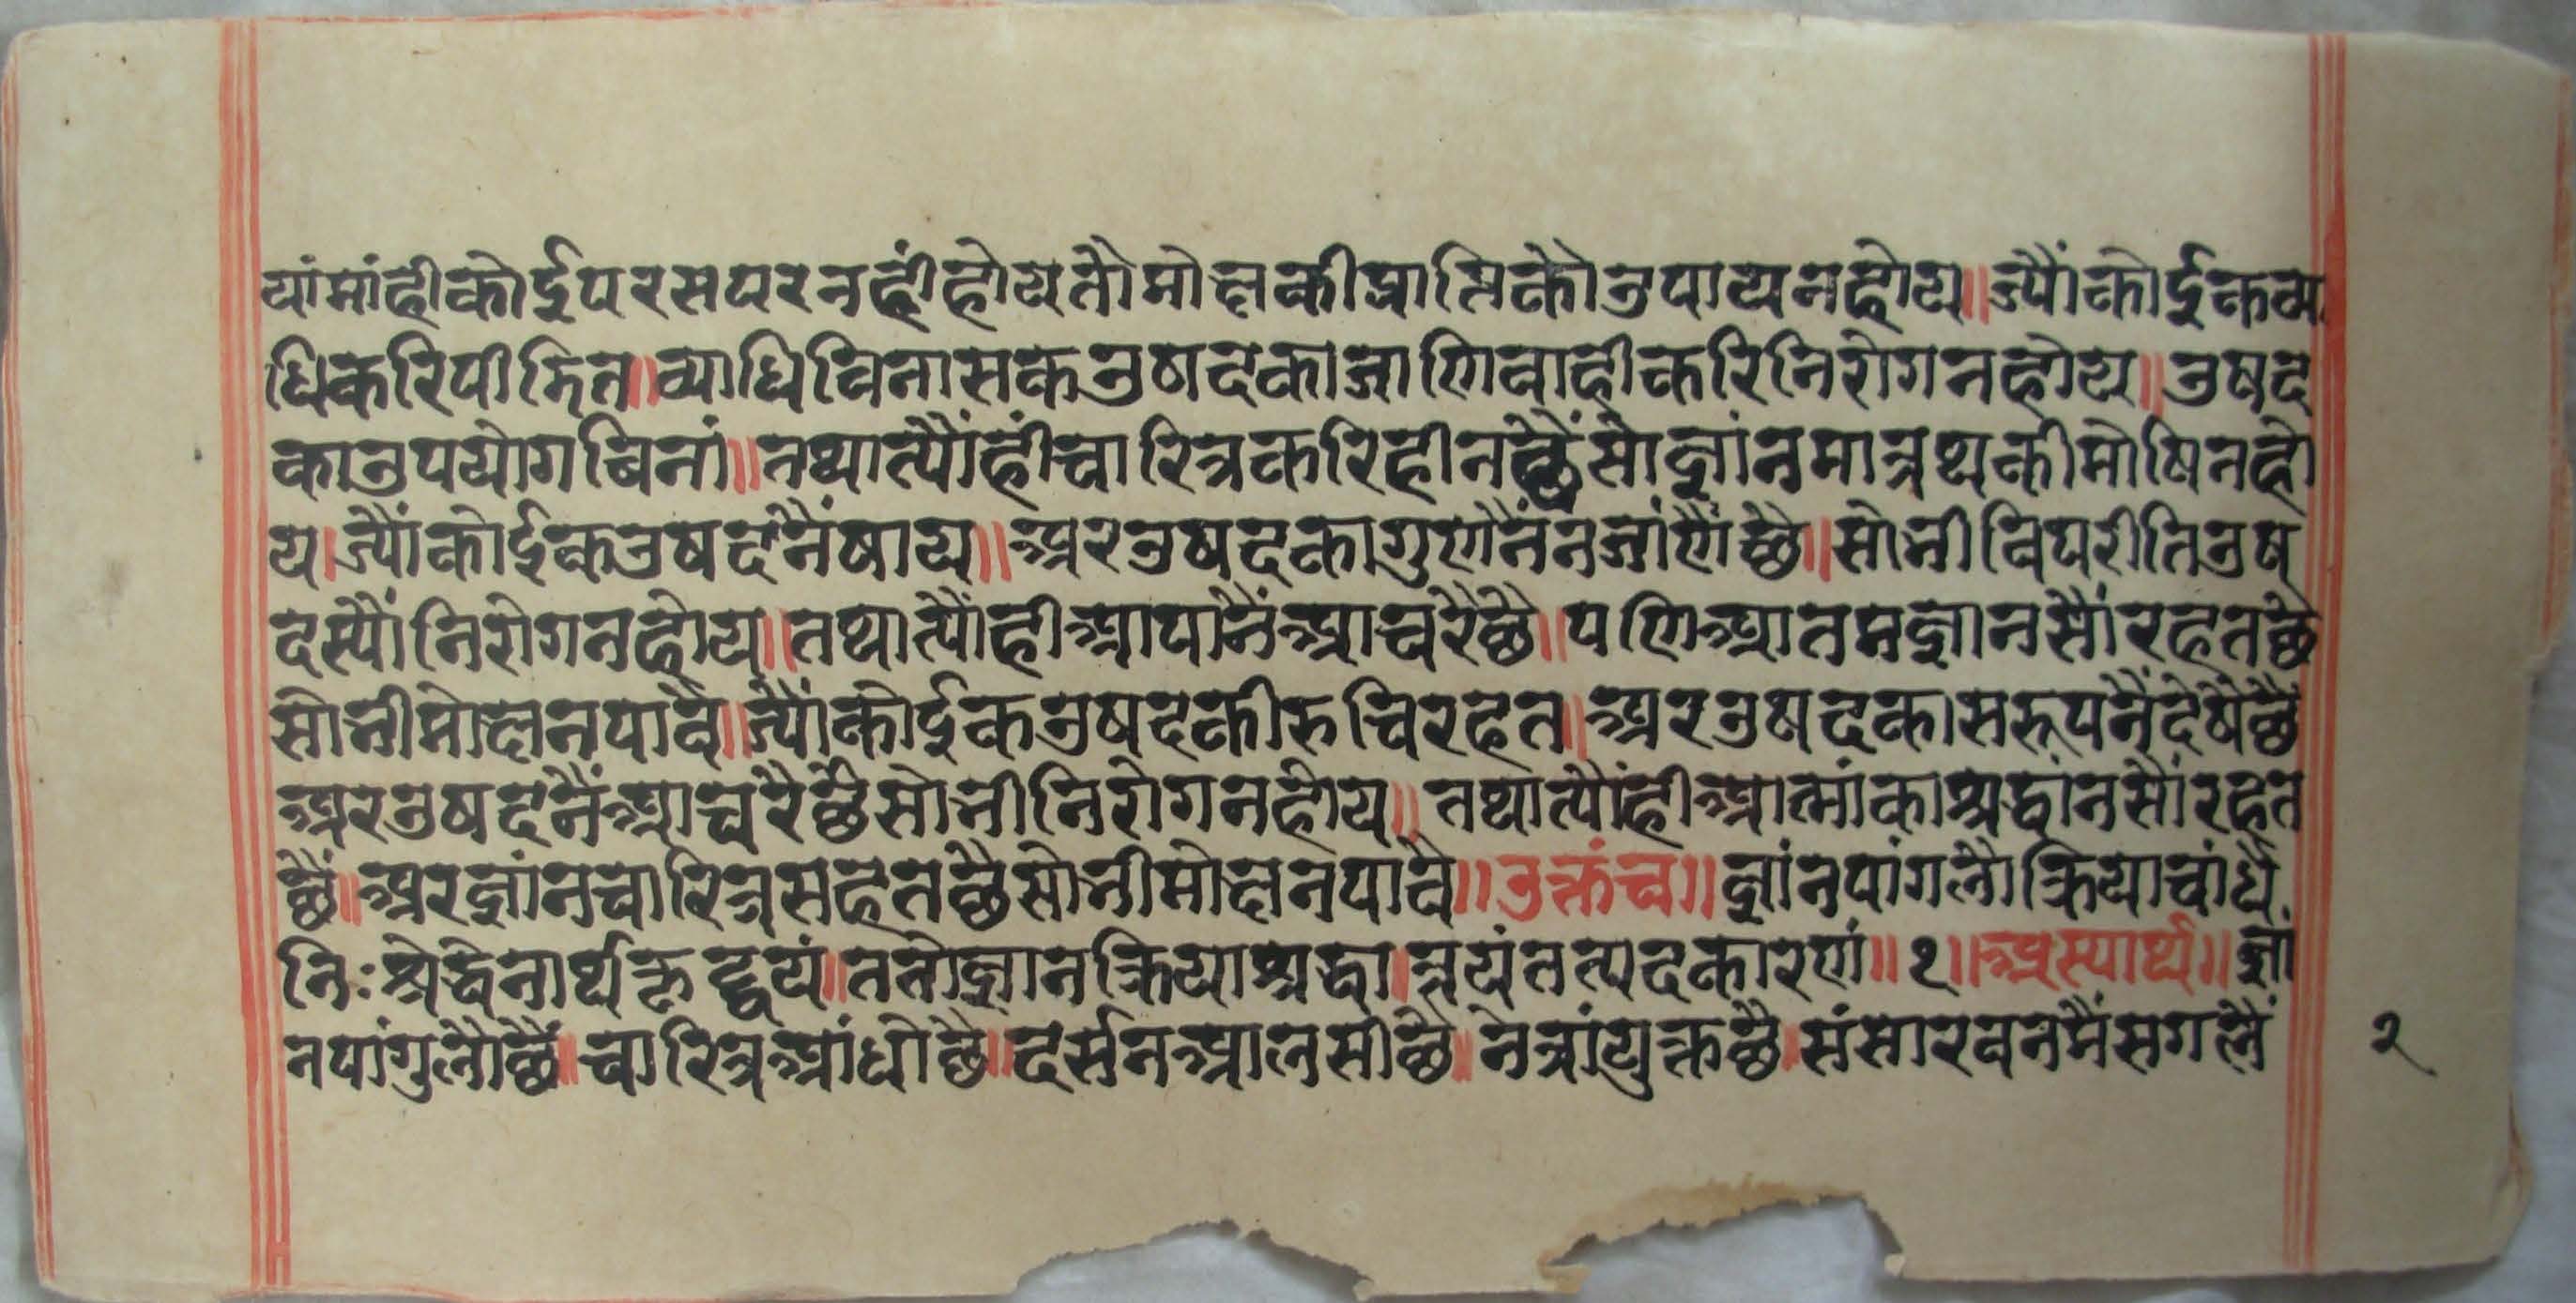 यांमांहीकोईपरसपरनहींहोयतौमोक्षकीप्राप्तिकौउपायनहोय॥ज्यौंकोईकव्या
धिकरिपीडित॥व्याधिविनासकउषदकाजाणिवाहीकरिनिरोगनहोय॥उषद
काउपयोगबिनां॥तथात्यौंहींचारित्रकरिहीनछैंसोज्ञांनमात्रथकीमोषिनहो
य।ज्यौंकोईकउषदनैंषाय॥अरउषदकागुणनैंनजांणैंछै॥सोभीविपरीतिउष
दस्यौंनिरोगनहोय॥तथात्यौंहीआपानैंआचरैछै॥पणिआतमज्ञानसौंरहतछै
सोभीमोक्षनपावै॥ज्यौंकोईकउषदकीरुचिरहत॥अरउषदकासरूपनैंदेषैछै
अरउषदनैंआचरैछैसोभीनिरोगनहोय॥तथात्यौंहीआत्मांकाश्रद्धांनसौंरहत
छैं॥अरज्ञांनचारित्रसहतछैसोभीमोक्षनपावै॥उक्तंच॥ज्ञांनपांगलौक्रियाचांधे
निःश्रेद्धेनार्थकृद्द्वयं॥ततोज्ञानक्रियाश्रद्धा॥त्रयंतत्पदकारणं॥१॥अस्यार्थ॥ज्ञां
नपांगुलौछै॥चारित्रआंधोछै॥दर्सनआलसीछै॥नेत्रांयुक्तछै॥संसारवनमैंसगलैं
२